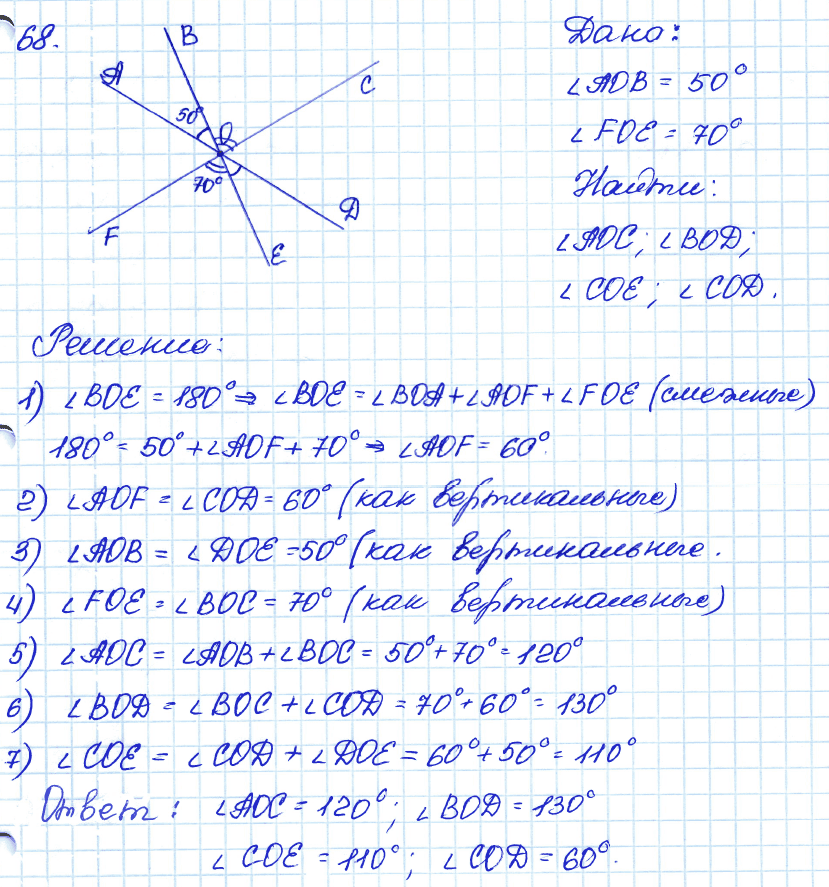 68.
B
A
C
50°
O
70°
D
F
E
Дано:
∠AOB = 50°
∠FOE = 70°
Найти:
∠AOC; ∠BOD;
∠COE; ∠COD.
Решение:
1) ∠BOE = 180° ⇒ ∠BOE = ∠BOA + ∠AOF + ∠FOE (смежные)
180° = 50° + ∠AOF + 70° ⇒ ∠AOF = 60°.
2) ∠AOF = ∠COD = 60° (как вертикальные)
3) ∠AOB = ∠DOE = 50° (как вертикальные.
4) ∠FOE = ∠BOC = 70° (как вертикальные)
5) ∠AOC = ∠AOB + ∠BOC = 50° + 70° = 120°
6) ∠BOD = ∠BOC + ∠COD = 70° + 60° = 130°
7) ∠COE = ∠COD + ∠DOE = 60° + 50° = 110°
Ответ: ∠AOC = 120°; ∠BOD = 130°
∠COE = 110°; ∠COD = 60°.